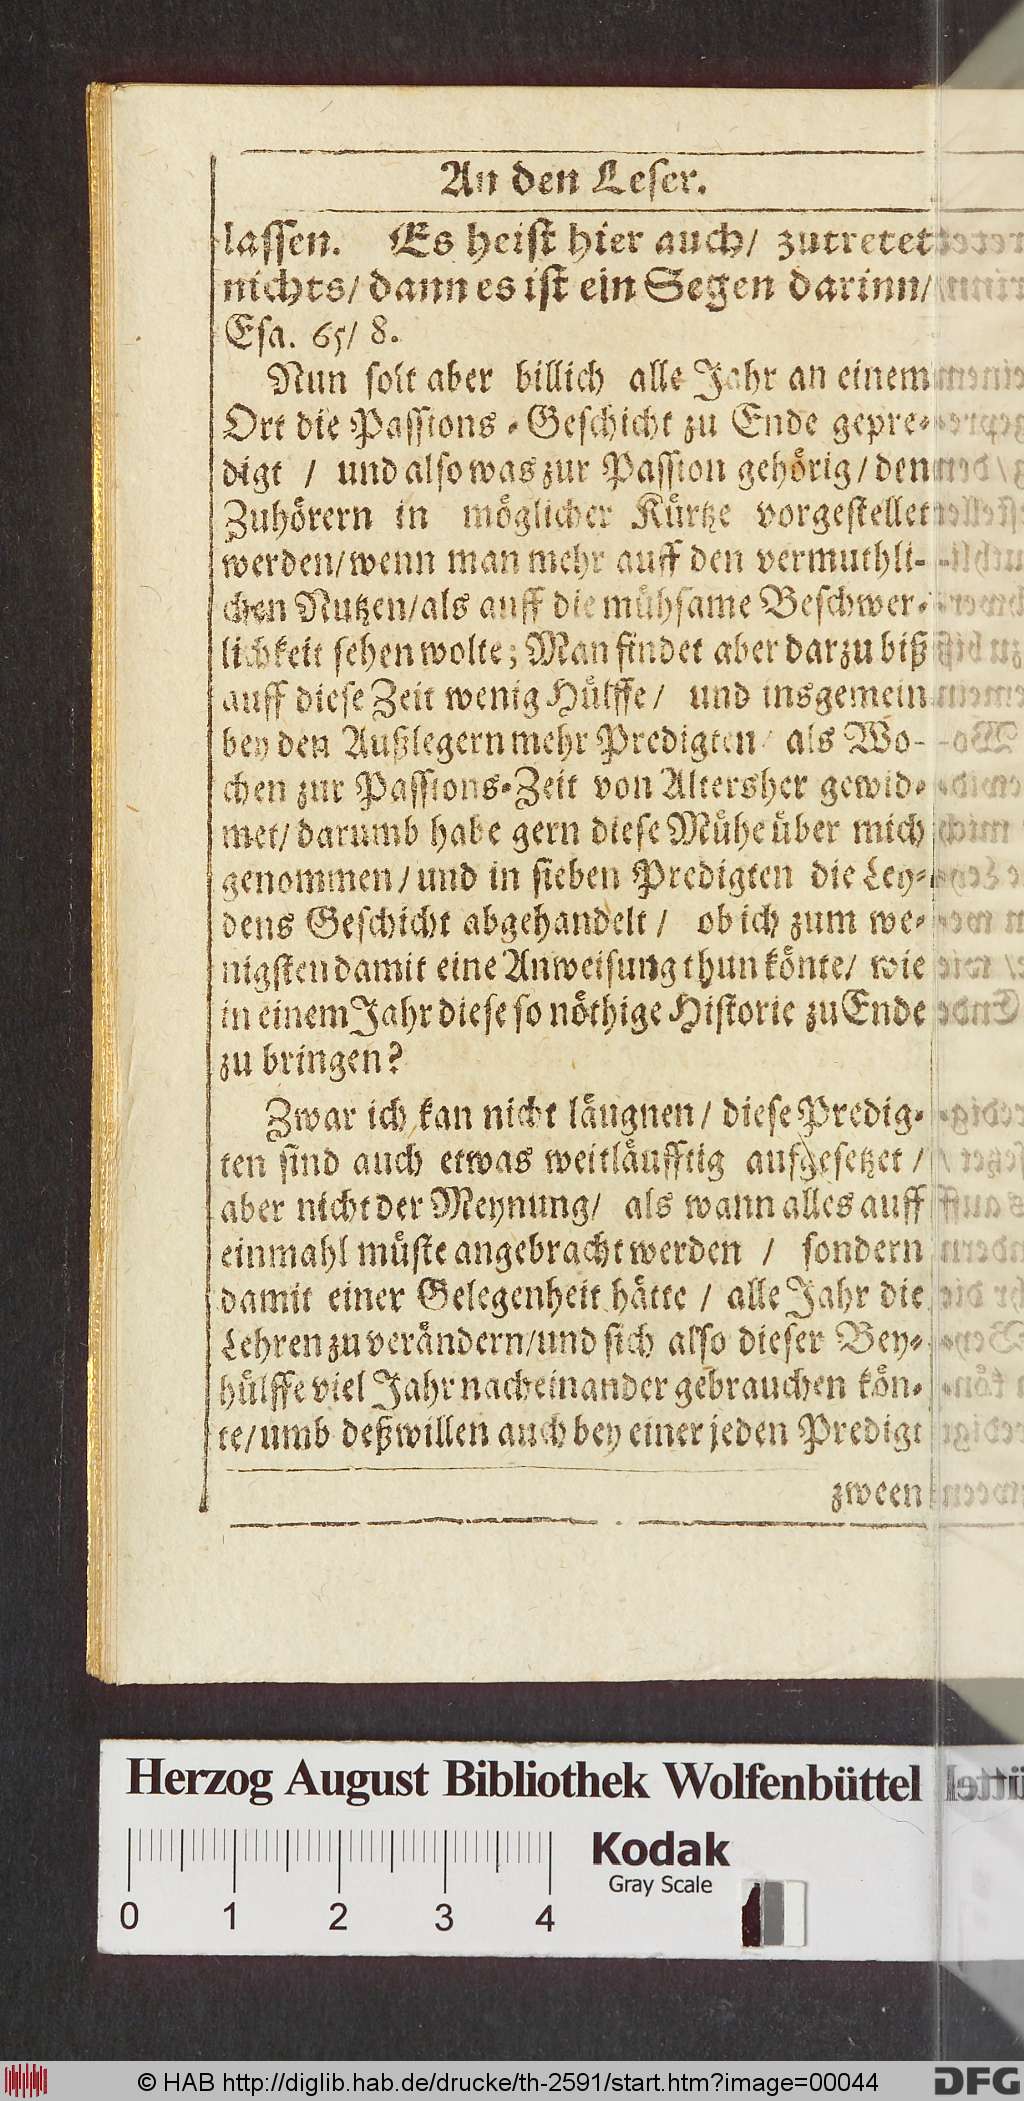 An den Leser.
lassen. Es heist hier auch/ zutretet
nichts/ dann es ist ein Segen darinn/
Esa. 65/ 8.
Nun solt aber billich alle Jahr an einem
Ort die Passions-Geschicht zu Ende gepre-
digt / und also was zur Passion gehörig/ den
Zuhörern in möglicher Kürtze vorgestellet
werden/ wenn man mehr auff den vermuthli-
chen Nutzen/ als auff die mühsame Beschwer-
lichkeit sehen wolte; Man findet aber darzu biß
auff diese Zeit wenig Hülffe/ und insgemein
bey den Außlegern mehr Predigten/ als Wo-
chen zur Passions-Zeit von Altersher gewid-
met/ darumb habe gern diese Mühe über mich
genommen/ und in sieben Predigten die Ley-
dens Geschicht abgehandelt/ ob ich zum we-
nigsten damit eine Anweisung thun könte/ wie
in einem Jahr diese so nöthige Historie zu Ende
zu bringen?
Zwar ich kan nicht läugnen/ diese Predig-
ten sind auch etwas weitläufftig aufgesetzet/
aber nicht der Meynung/ als wann alles auff
einmahl müste angebracht werden / sondern
damit einer Gelegenheit hätte / alle Jahr die
Lehren zu verändern/ und sich also dieser Bey-
hülffe viel Jahr nacheinander gebrauchen kön-
te/ umb deßwillen auch bey einer jeden Predigt
zween
Herzog August Bibliothek Wolfenbüttel
Kodak
Gray Scale
0 1 2 3 4
© HAB http://diglib.hab.de/drucke/th-2591/start.htm?image=00044
DFG